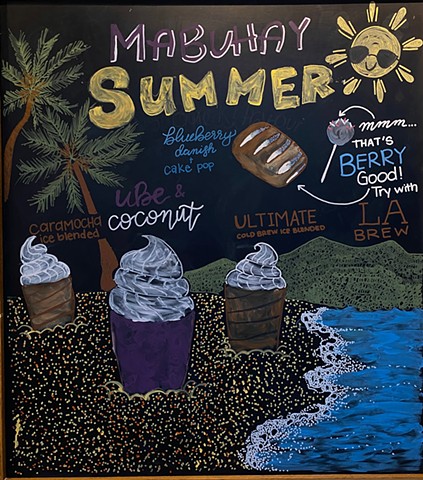 MABUHAY
SUMMER
blueberry
danish
+
cake pop
mmm...
THAT'S
BERRY
Good!
Try with
LA
BREW
ube &
coconut
CARAMOCHA
ice blended
ULTIMATE
COLD BREW ICE BLENDED